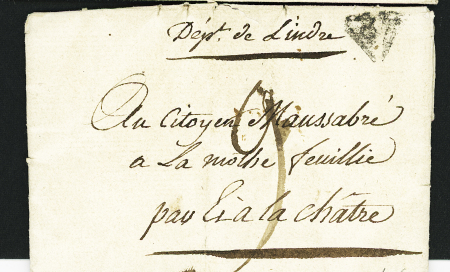 Dépt. de Lindre
Au Citoyen Maussabré
a La mothe feuillie
par et a la châtre